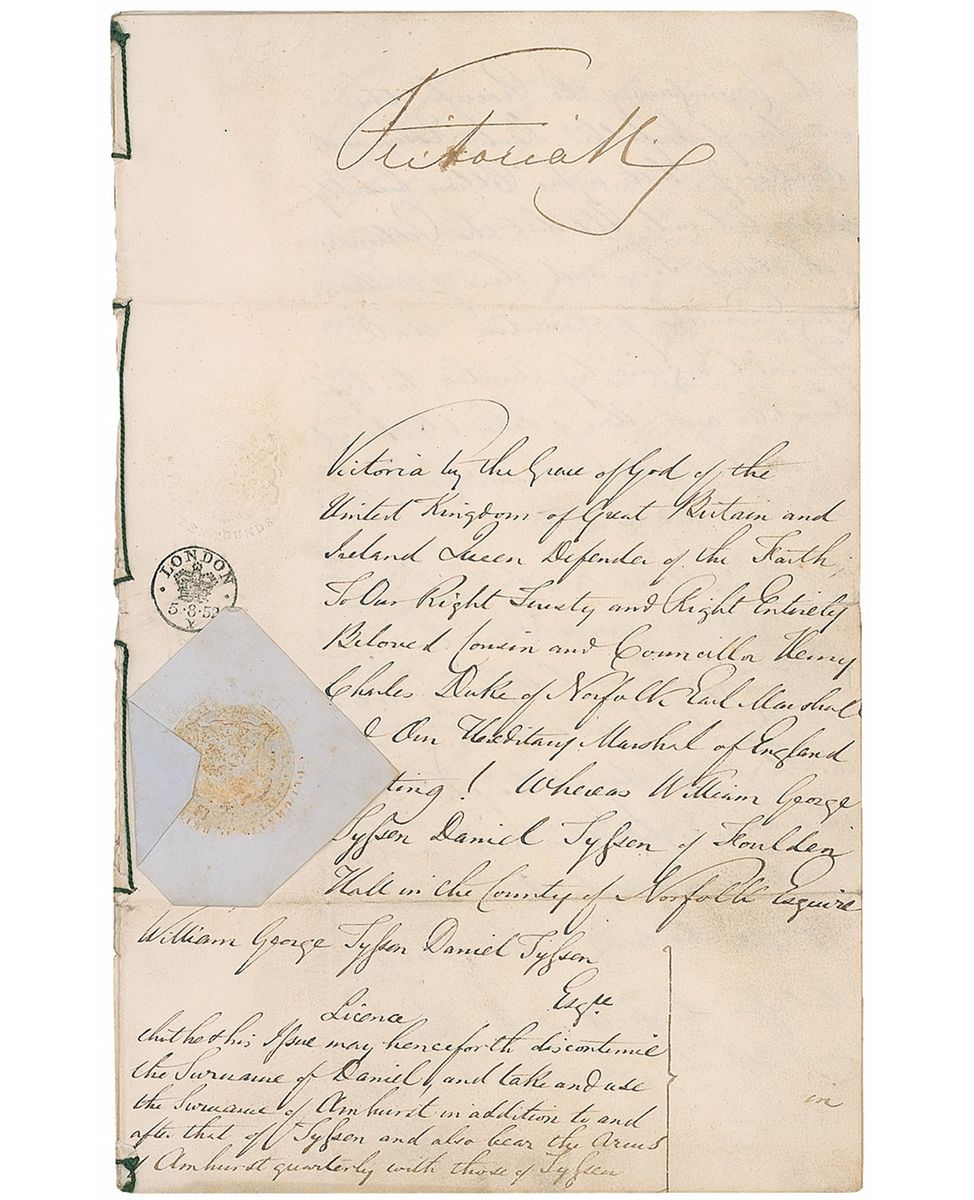 Victoria R
Victoria by the Grace of God of the
United Kingdom of Great Britain and
Ireland Queen Defender of the Faith;
To Our Right Trusty and Right Entirely
Beloved Cousin and Councillor Henry
Charles Duke of Norfolk Earl Marshal
Our Hereditary Marshal of England
ting! Whereas William George
Tyſsen Daniel Tyſsen of Foulden
Hall in the County of Norfolk Esquire
LONDON
5·8·52
X
William George Tyſsen Daniel Tyſsen
Esqre
Licence
that he & his Iſsue may henceforth discontinue
the Surname of Daniel, and take and use
the Surname of Amhurst in addition to and
after that of Tyſsen and also bear the Arms
of Amhurst quarterly with those of Tyſsen